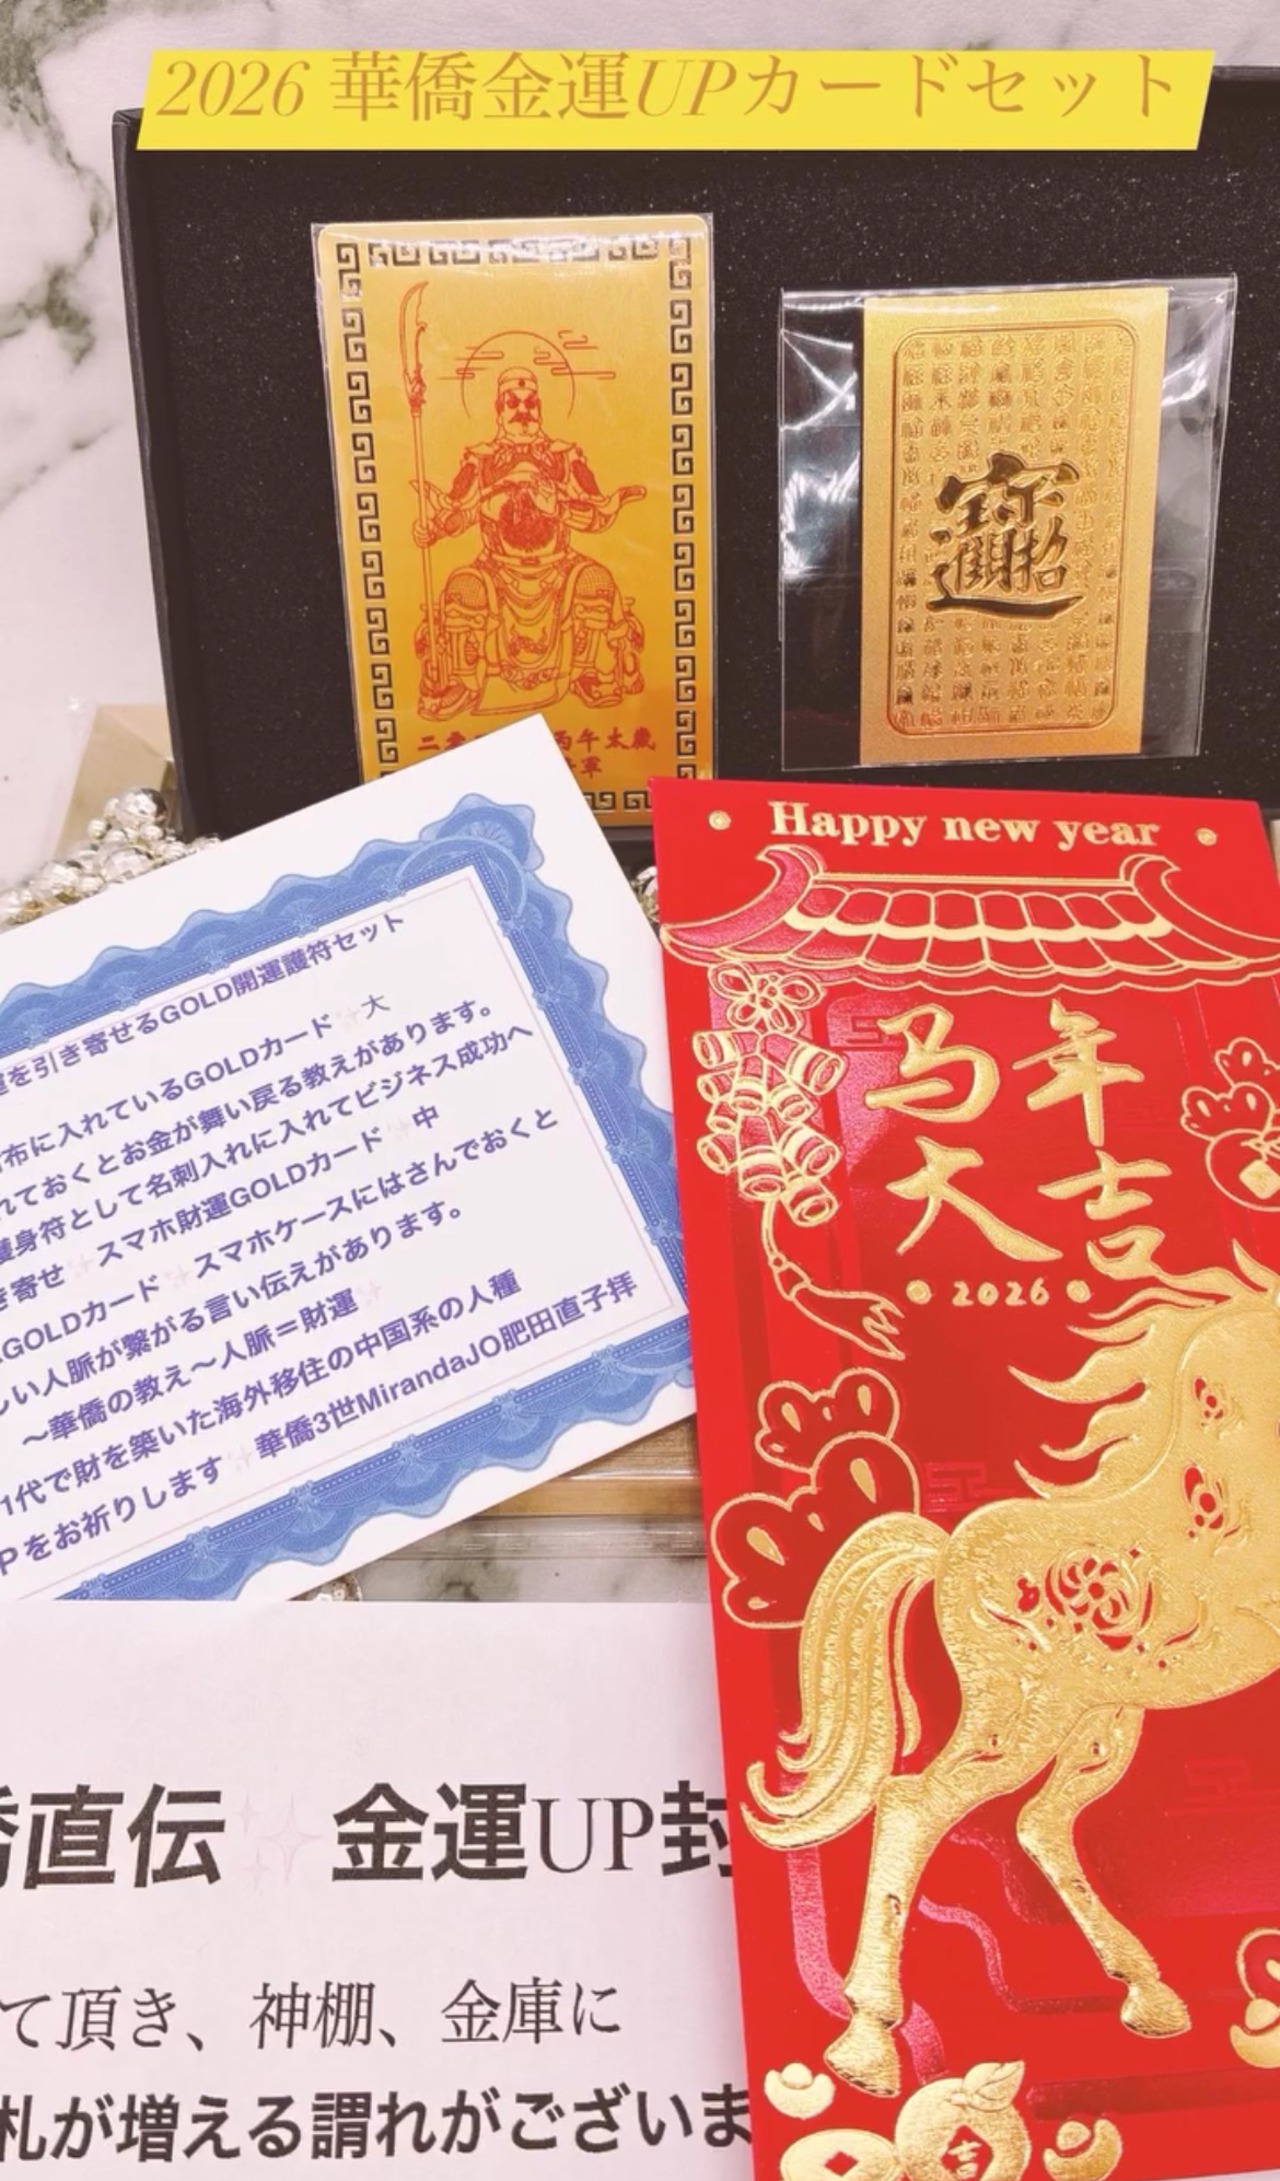 2026 華僑金運UPカードセット
丙午太歲
軍
Happy new year
马年
大吉
2026
を引き寄せるGOLD開運護符セット
布に入れているGOLDカード✨大
れておくとお金が舞い戻る教えがあります。
護身符として名刺入れに入れてビジネス成功へ
き寄せ✨スマホ財運GOLDカード✨中
GOLDカード✨スマホケースにはさんでおくと
しい人脈が繋がる言い伝えがあります。
〜華僑の教え〜人脈＝財運✨
1代で財を築いた海外移住の中国系の人種
Pをお祈りします✨華僑3世MirandaJO肥田直子拝
直伝✨金運UP封
て頂き、神棚、金庫に
札が増える謂れがございま
吉